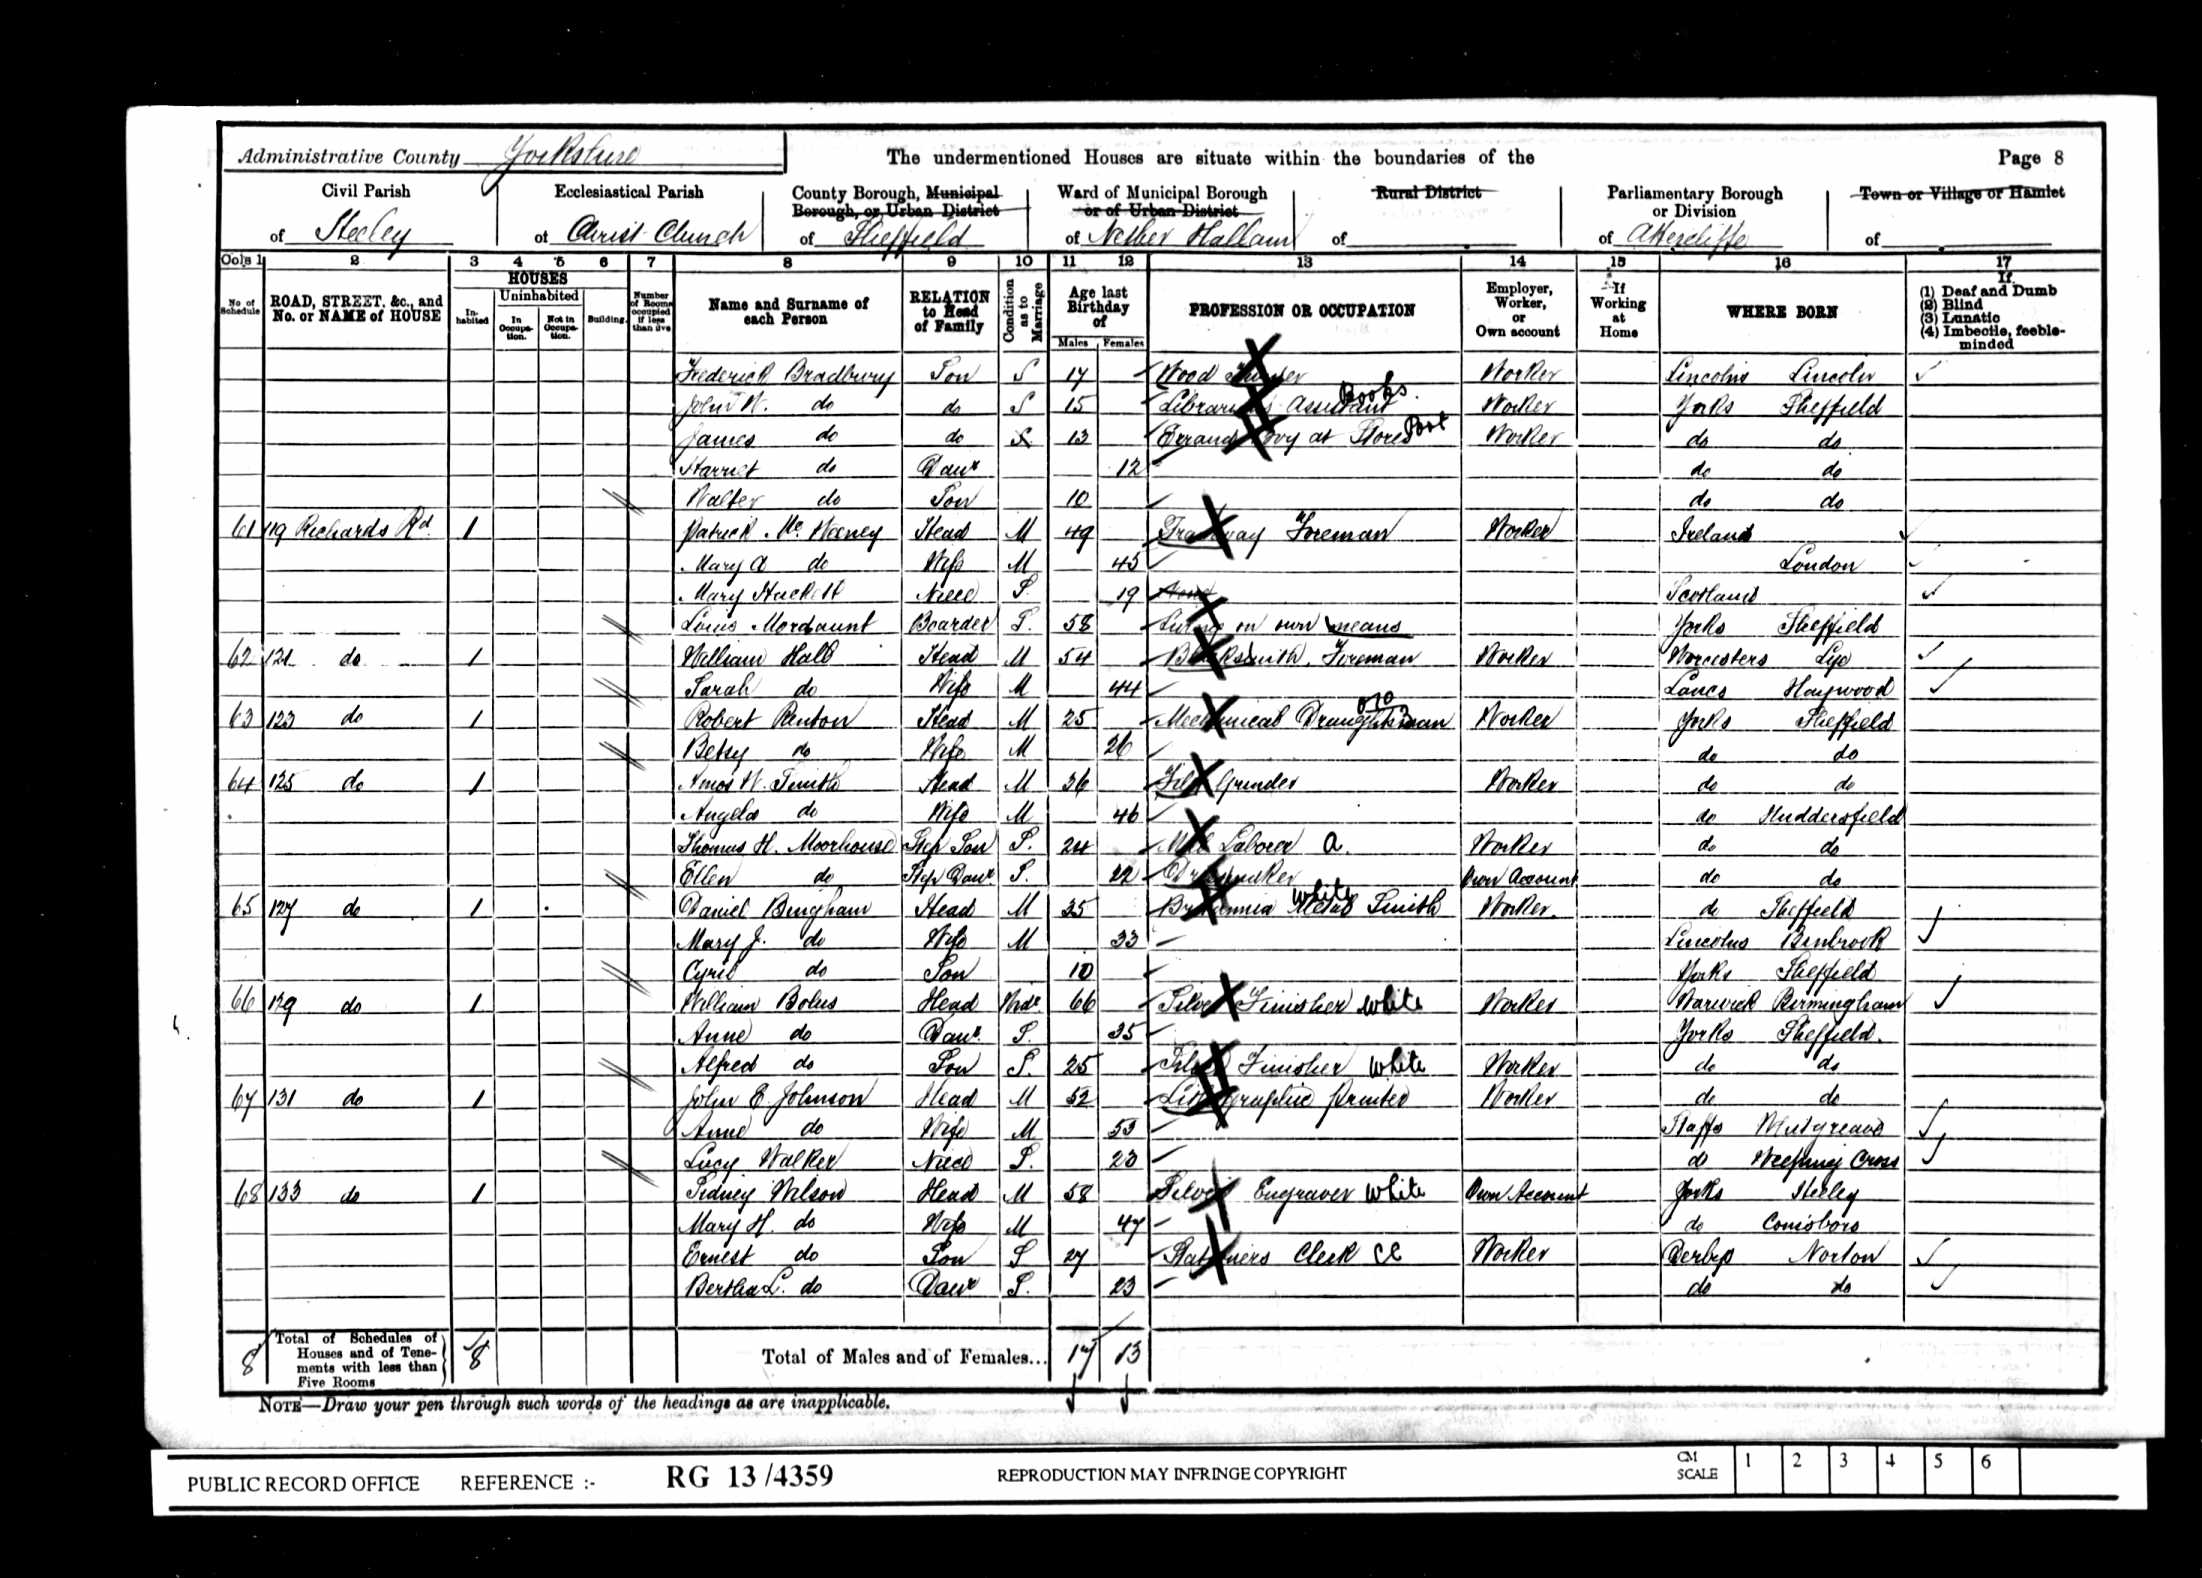 Administrative County Yorkshire The undermentioned Houses are situate within the boundaries of the Page 8
Civil Parish Ecclesiastical Parish County Borough, Municipal Borough, or Urban District Ward of Municipal Borough or of Urban District Rural District Parliamentary Borough or Division Town or Village or Hamlet
of Heeley of Christ Church of Sheffield of Nether Hallam of of Attercliffe of
Cols 1 2 3 4 5 6 7 8 9 10 11 12 13 14 15 16 17
No of Schedule ROAD, STREET, &c., and No. or NAME of HOUSE HOUSES Inhabited Uninhabited In Occupation. Not in Occupation. Building. Number of Rooms occupied if less than five Name and Surname of each Person RELATION to Head of Family Condition as to Marriage Age last Birthday of Males Females PROFESSION OR OCCUPATION Employer, Worker, or Own account If Working at Home WHERE BORN If (1) Deaf and Dumb (2) Blind (3) Lunatic (4) Imbecile, feeble-minded
Frederick Bradbury Son S 17 Wood Worker Lincolns Lincoln
John W. do do S 15 Librarian's Assistant Books. Worker Yorks Sheffield
James do do S 13 Errand Boy at Stores Worker do do
Harriet do Daur 12 do do
Walter do Son 10 do do
61 119 Richards Rd. 1 Patrick Mc Weeney Head M 49 Tramway Foreman Worker Ireland
Mary A do Wife M 45 London
Mary Hackett Niece S. 19 None Scotland
Louis Mordaunt Boarder S. 58 Living on own means Yorks Sheffield
62 121 do 1 William Hall Head M 54 Blacksmith Foreman Worker Worcesters Lye
Sarah do Wife M 44 Lancs Haywood
63 123 do 1 Robert Renton Head M 25 Mechanical Draughtsman Worker Yorks Sheffield
Betsy do Wife M 26 do do
64 125 do 1 Amos W. Smith Head M 36 File Grinder Worker do do
Angela do Wife M 46 do Huddersfield
Thomas H. Moorhouse Step Son S. 24 Laborer a. Worker do do
Ellen do Step Daur. S. 22 Dressmaker Own Account do do
65 127 do 1 Daniel Bingham Head M 35 Britannia Metal Smith white Worker. do Sheffield
Mary J. do Wife M 33 Lincolns Binbrook
Cyril do Son 10 Yorks Sheffield
66 129 do 1 William Bolus Head Widr. 66 Silver Finisher white Worker Warwick Birmingham
Anne do Daur. S. 35 Yorks Sheffield.
Alfred do Son S. 25 Silver Finisher white Worker do do
67 131 do 1 John E. Johnson Head M 52 Lithographic Printer Worker do do
Anne do Wife M 53 Staffs
Lucy Walker Niece S. 23 do Weeping Cross
68 133 do 1 Sidney Wilson Head M 58 Silver Engraver white Own Account Yorks Heeley
Mary H. do Wife M 47 do Conisboro
Ernest do Son S 27 Stationers Clerk Worker Derbys Norton
Bertha L. do Daur S. 23 do do
8 Total of Schedules of Houses and of Tenements with less than Five Rooms 8 Total of Males and of Females... 17 13
NOTE—Draw your pen through such words of the headings as are inapplicable.
PUBLIC RECORD OFFICE REFERENCE :- RG 13/4359 REPRODUCTION MAY INFRINGE COPYRIGHT CM SCALE 1 2 3 4 5 6